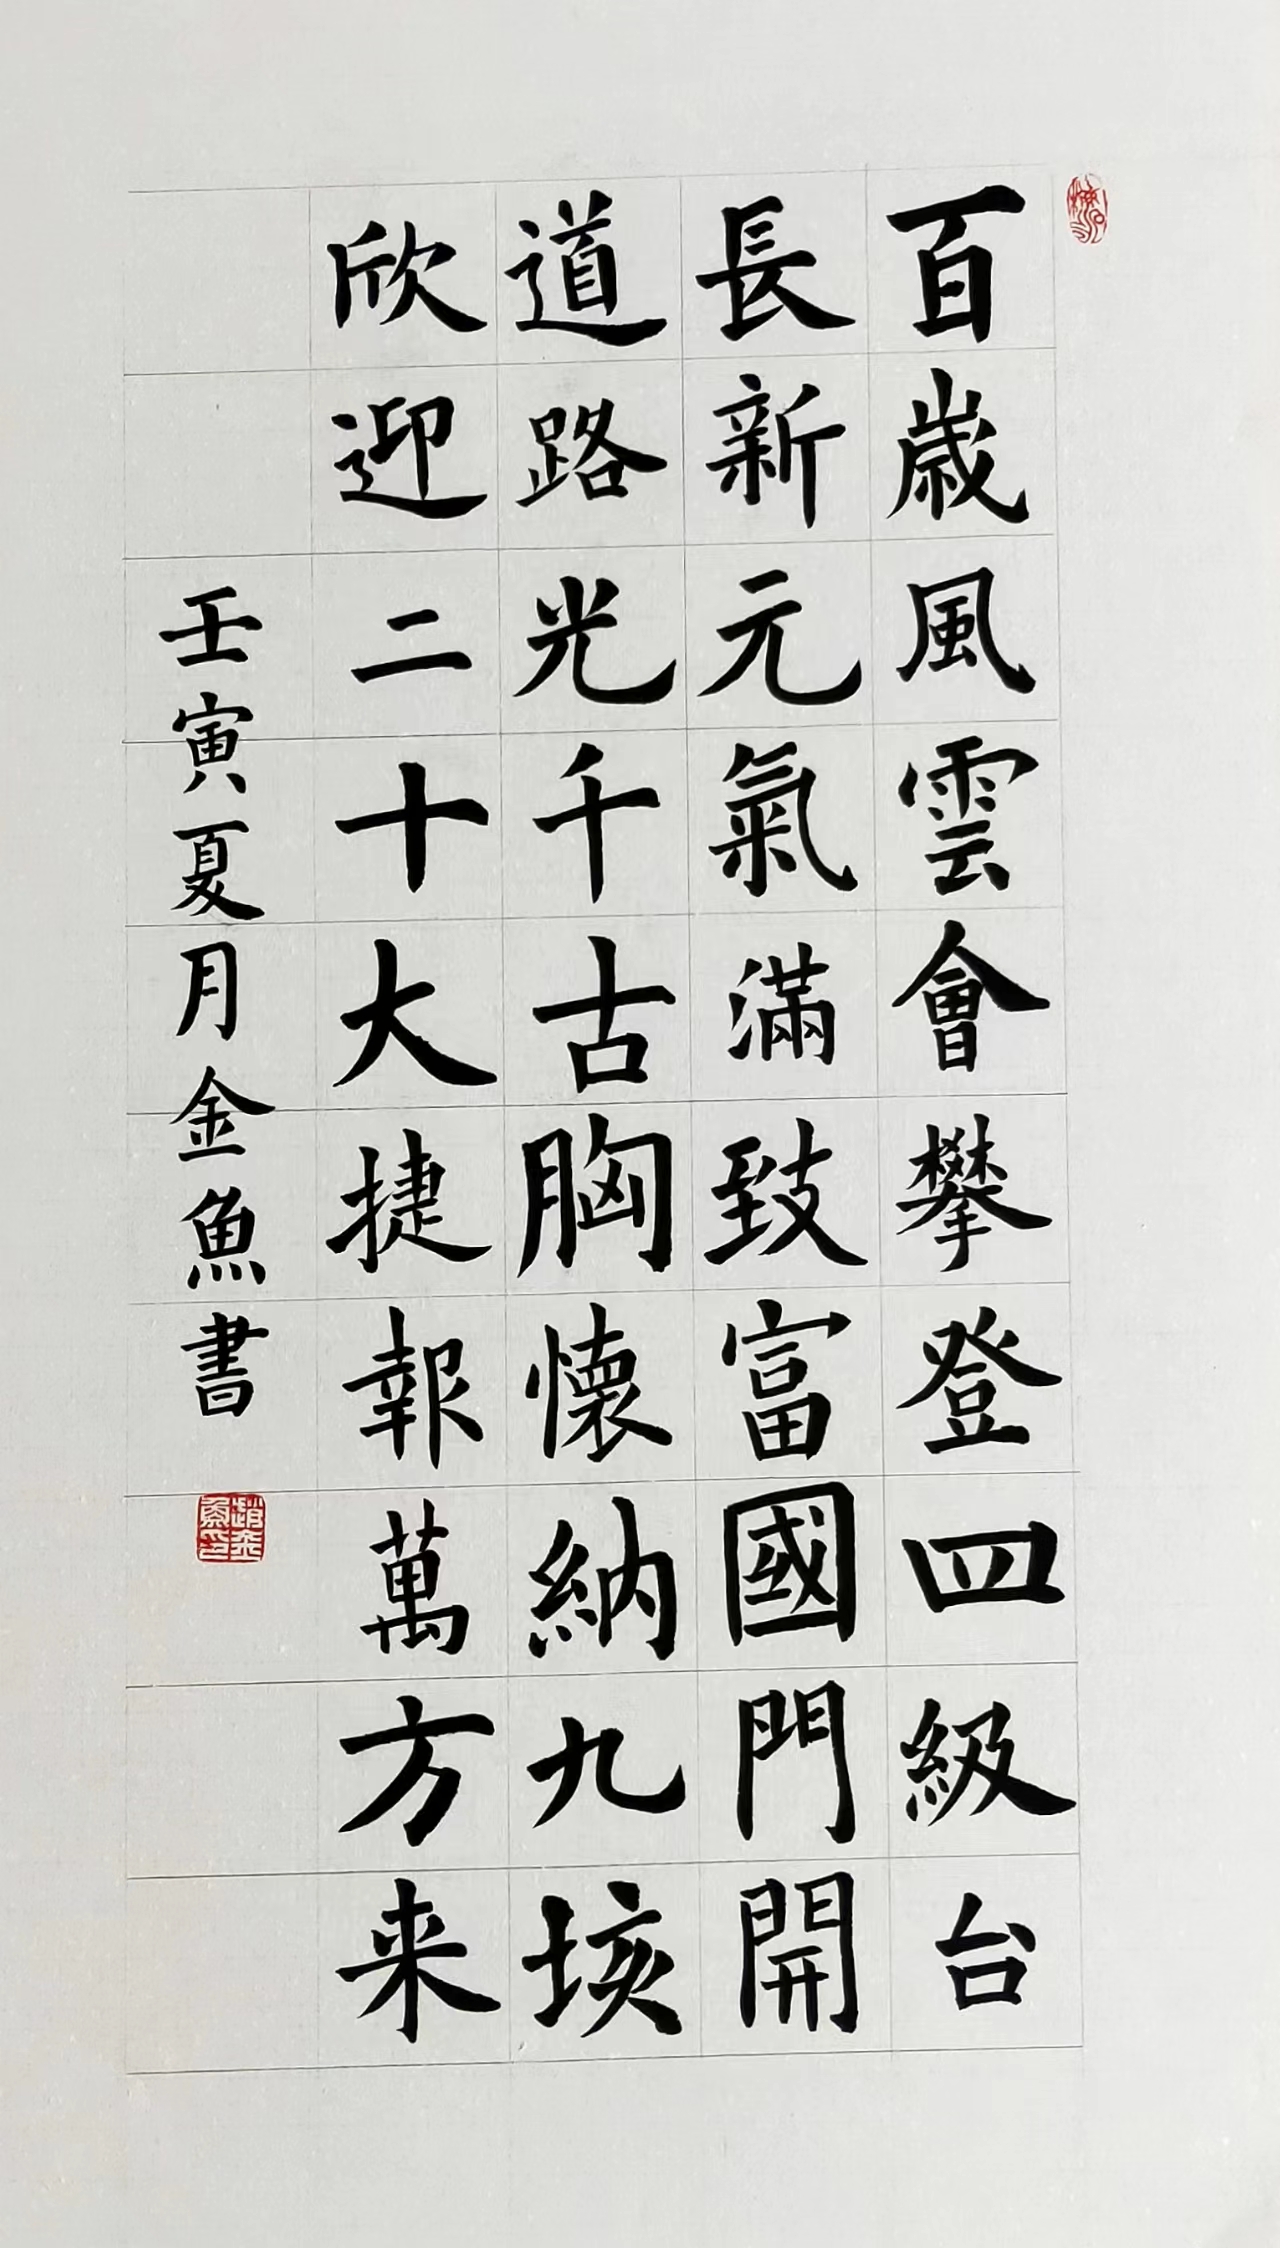 百歲風雲會攀登四級台
長新元氣滿致富國門開
道路光千古胸懷納九垓
欣迎二十大捷報萬方来
壬寅夏月金魚書
趙金魚印